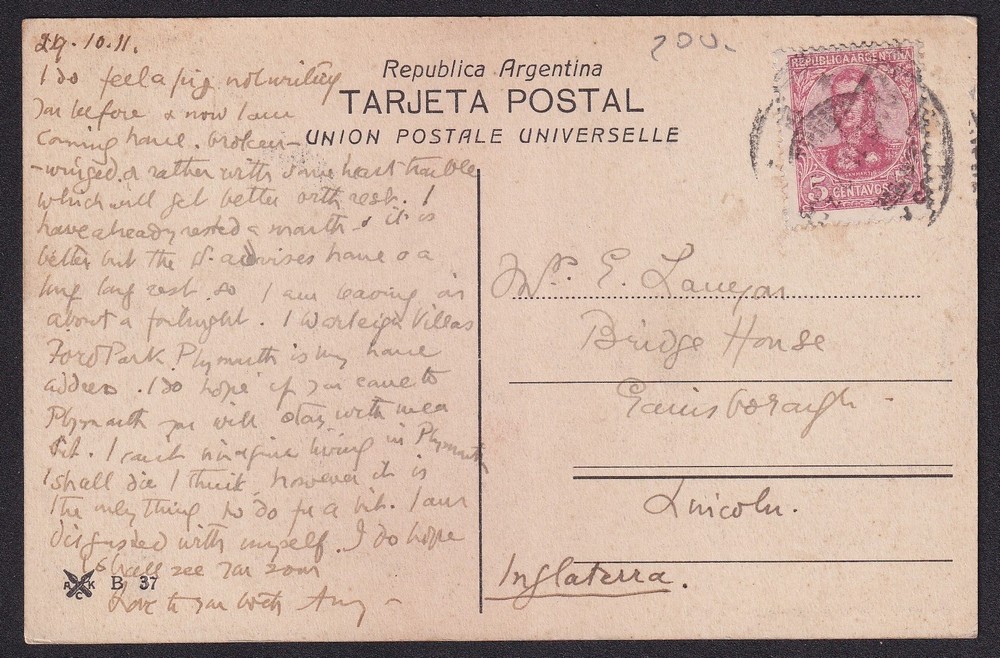 29.10.11.
I do feel a pig not writing
you before & now I am
coming home. broken-
-winged. or rather with some heart trouble
which will get better with rest. I
have already rested a month & it is
better but the Dr. advises home & a
long long rest so I am leaving in
about a fortnight. 1 Worleigh Villas
Ford Park Plymouth is my home
address. I do hope if you came to
Plymouth you will stay with me a
bit. I can't imagine living in Plymouth
I shall die I think, however it is
the only thing to do for a bit. I am
disgusted with myself. I do hope
I shall see you soon
Love to you both Amy -
A C K B 37
200.
Republica Argentina
TARJETA POSTAL
UNION POSTALE UNIVERSELLE
REPUBLICA ARGENTINA
SAN MARTIN
5 CENTAVOS
E.
Bridge House
Gainsborough -
Lincoln.
Inglaterra.